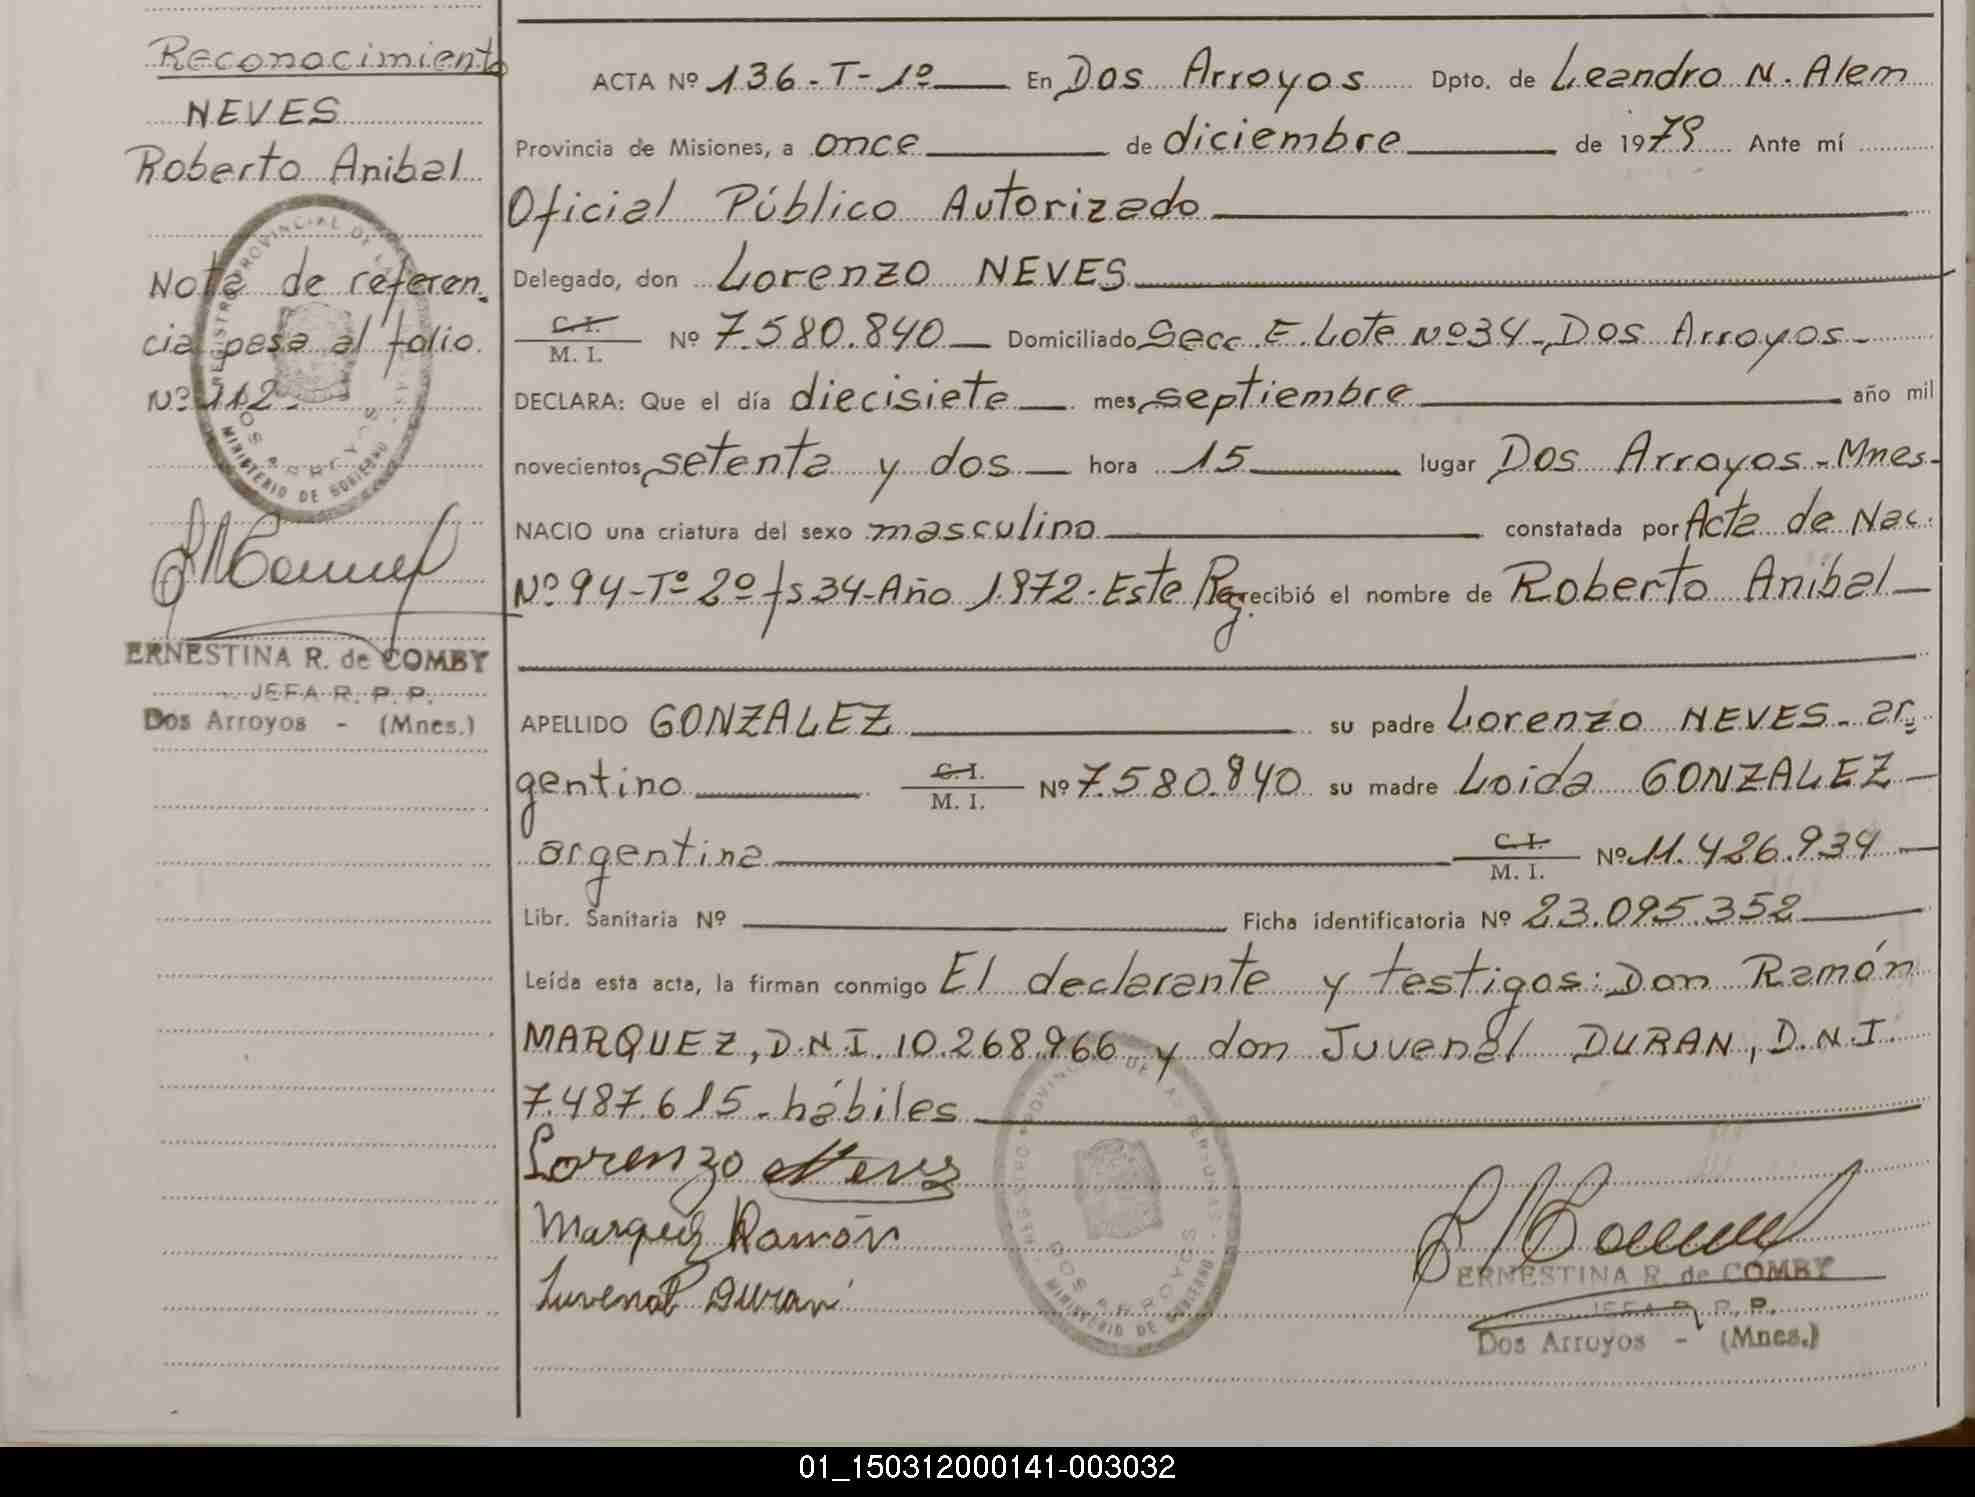 Reconocimiento
NEVES
Roberto Anibal
Nota de referen.
cia pasa al folio
Nº 112.
REGISTRO PROVINCIAL DE LAS
DOS ARROYOS
MINISTERIO DE GOBIERNO
ERNESTINA R. de COMBY
JEFA R. P. P.
Dos Arroyos - (Mnes.)
ACTA Nº 136-T-1º En Dos Arroyos Dpto. de Leandro N. Alem
Provincia de Misiones, a once de diciembre de 1979 Ante mí
Oficial Público Autorizado
Delegado, don Lorenzo NEVES
C.I.
M. I. Nº 7.580.840 Domiciliado Secc. E. Lote Nº 34-Dos Arroyos-
DECLARA: Que el día diecisiete mes septiembre año mil
novecientos setenta y dos hora 15 lugar Dos Arroyos-Mnes-
NACIO una criatura del sexo masculino constatada por Acta de Nac.
Nº 94-Tº 2º fs 34-Año 1.972. Este Reg. recibió el nombre de Roberto Anibal
APELLIDO GONZALEZ su padre Lorenzo NEVES - ar
gentino C.I. M. I. Nº 7.580.840 su madre Loida GONZALEZ
argentina C.I. M. I. Nº 11.426.934
Libr. Sanitaria Nº Ficha identificatoria Nº 23.095.352
Leída esta acta, la firman conmigo El declarante y testigos: Don Ramón
MARQUEZ, D.N.I. 10.268.966 y don Juvenal DURAN, D.N.I.
7.487.615-hábiles
Lorenzo Neves
Marquez Ramón
Juvenal Duran
REGISTRO PROVINCIAL DE LAS PERSONAS
DOS ARROYOS
MINISTERIO DE GOBIERNO
ERNESTINA R. de COMBY
JEFA R. P. P.
Dos Arroyos - (Mnes.)
01_150312000141-003032